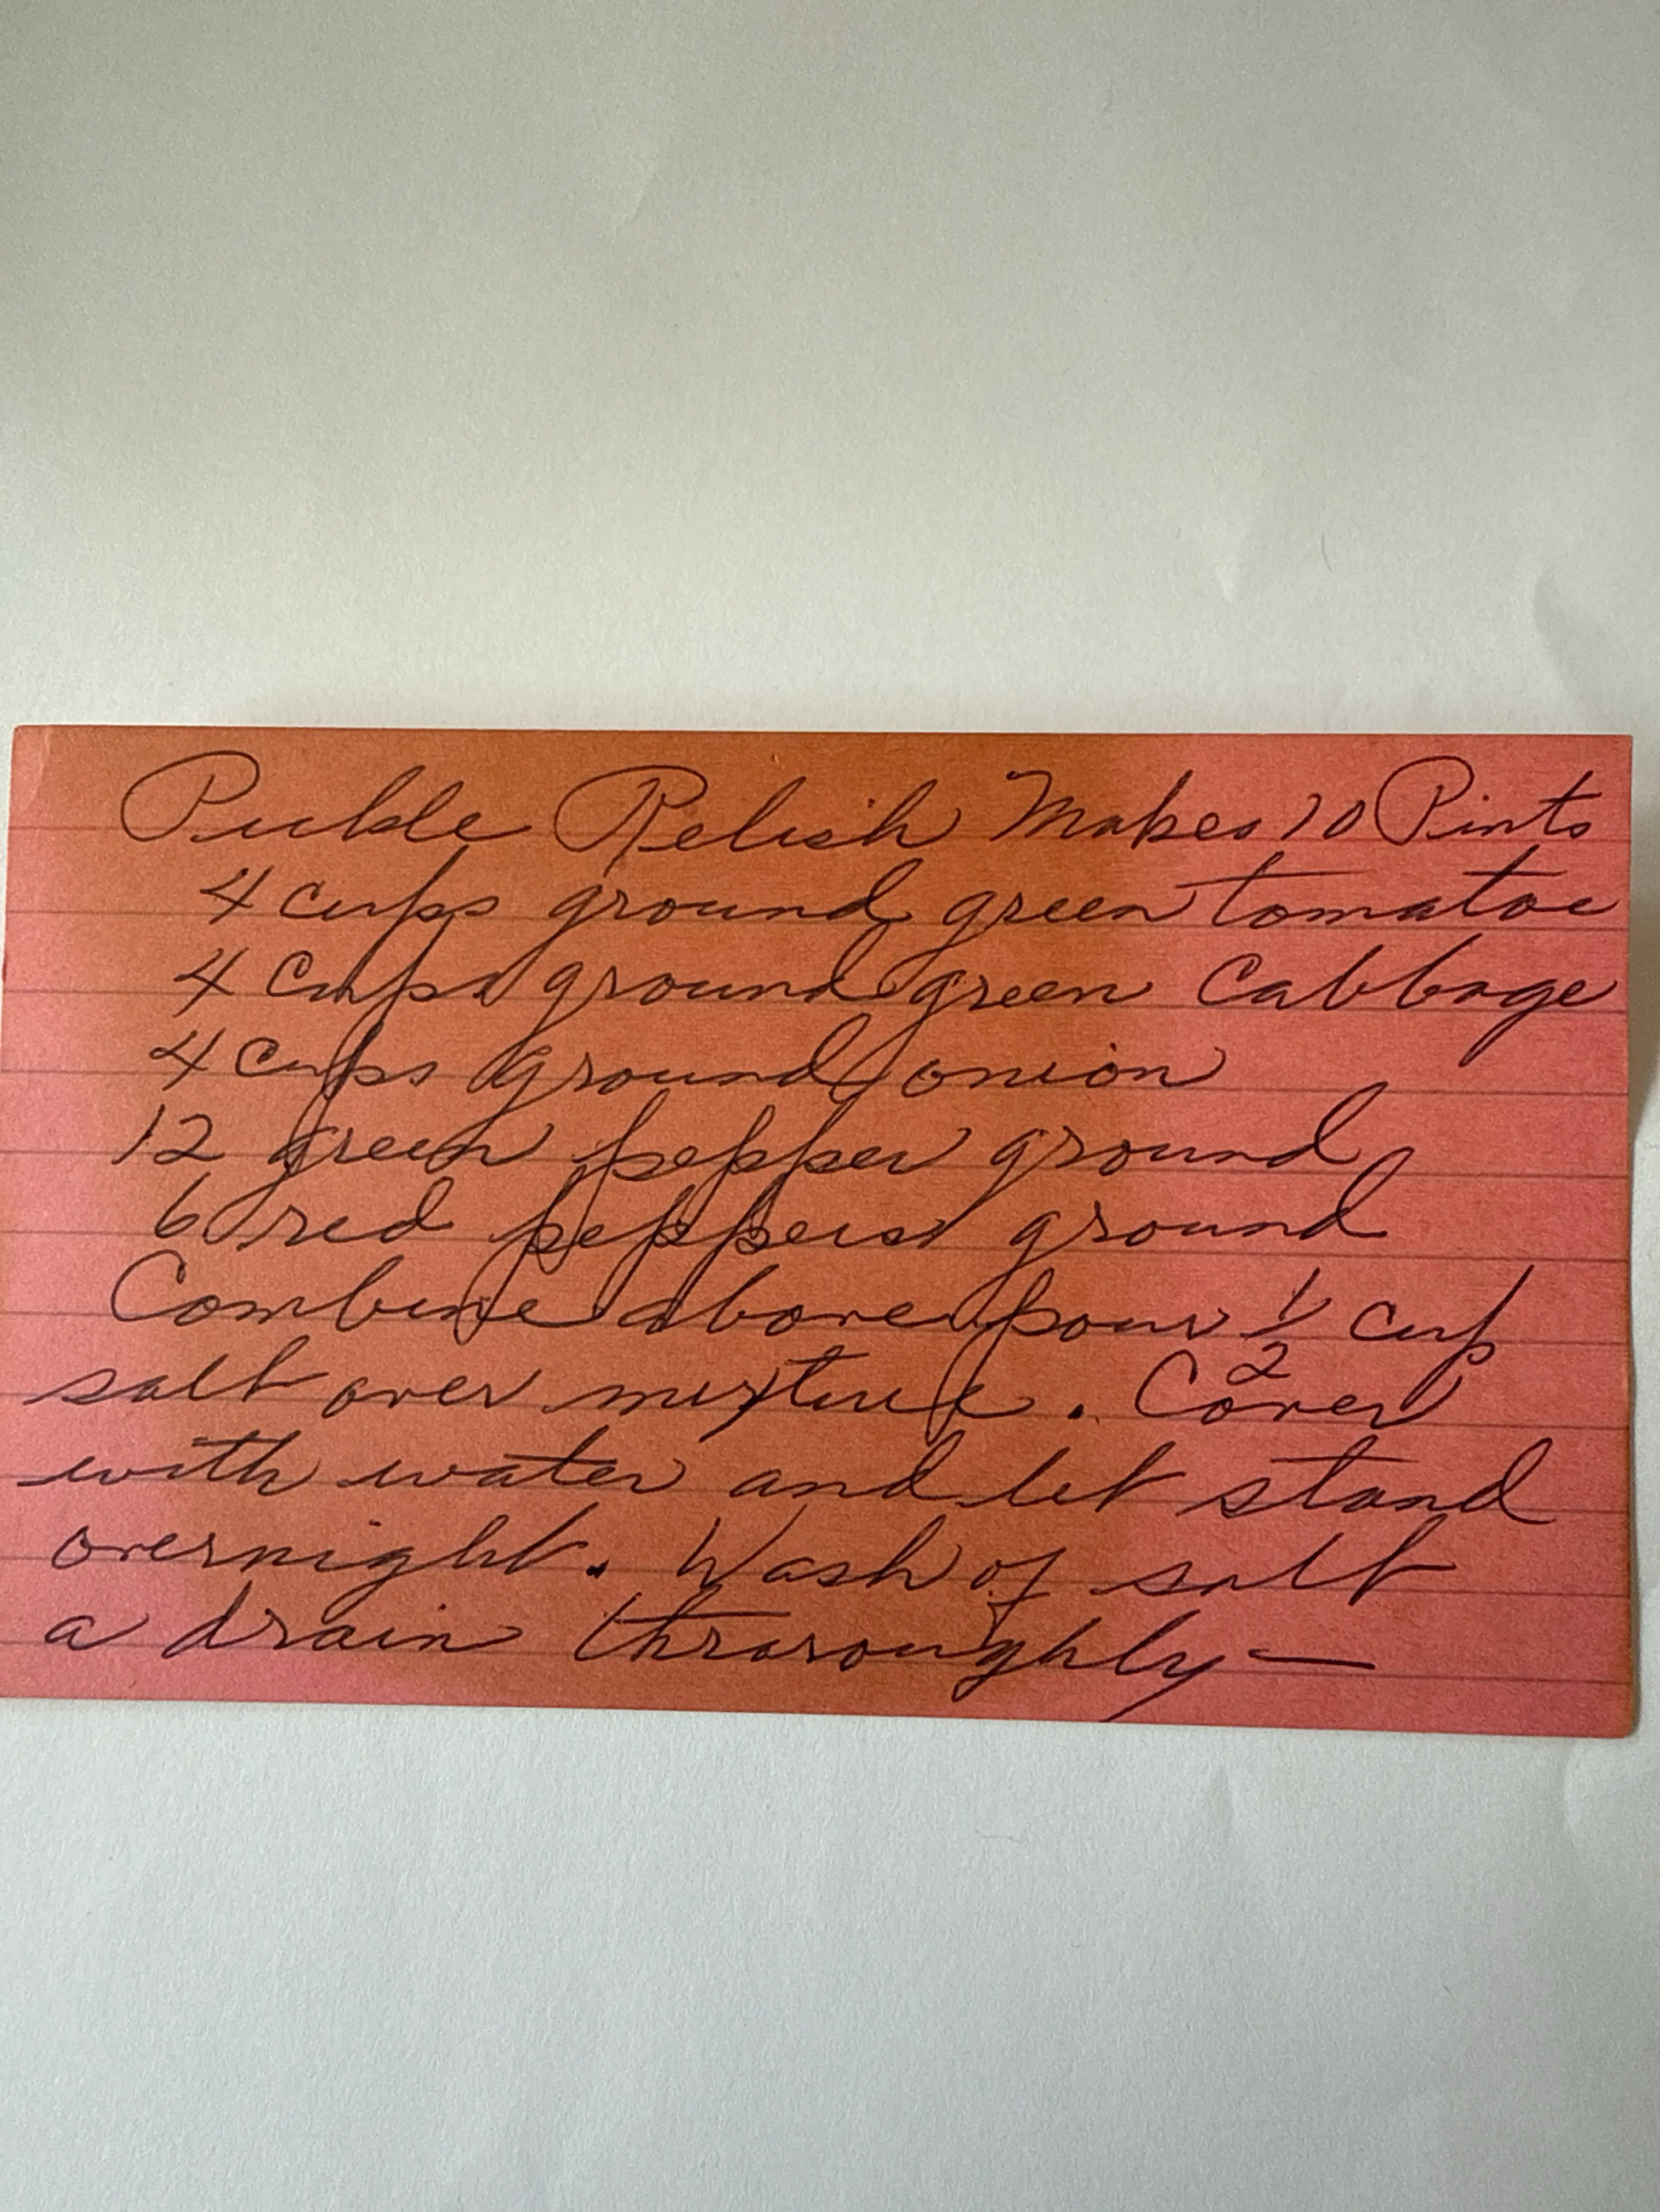 Pickle Relish Makes 10 Pints
4 cups ground green tomatoe
4 cups ground green Cabbage
4 cups ground onion
12 green pepper ground
6 red peppers ground
Combine above pour 1/2 cup
salt over mixture. Cover
with water and let stand
overnight. Wash of salt
a drain throroughly—